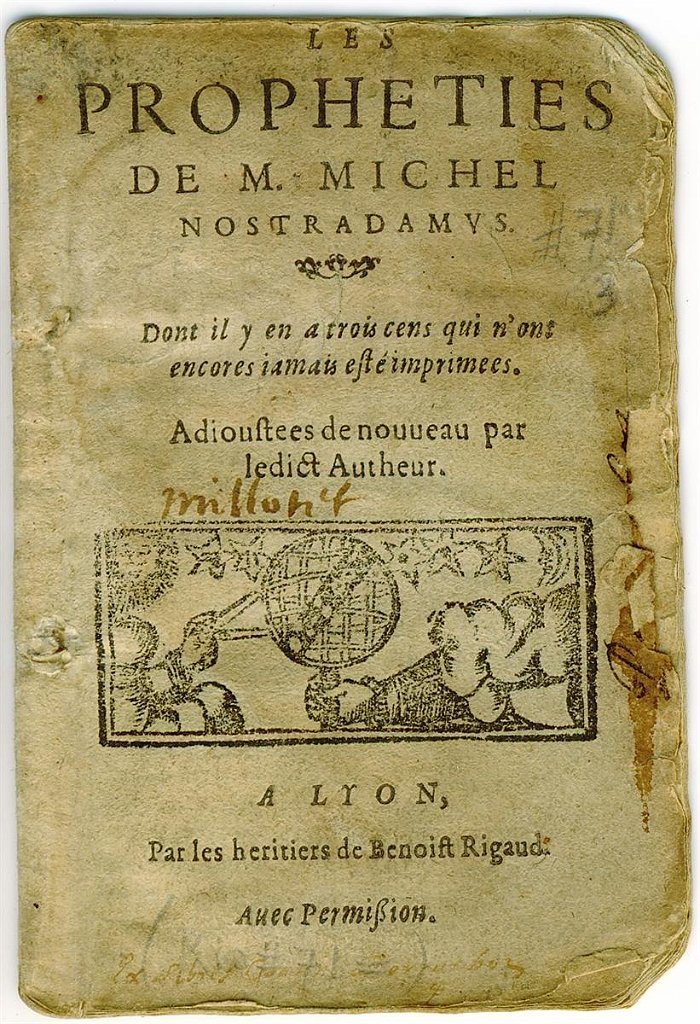 LES
PROPHETIES
DE M. MICHEL
NOSTRADAMVS.
Dont il y en a trois cens qui n'ont
encores iamais eſté imprimees.
Adiouſtees de nouueau par
ledict Autheur.
A LYON,
Par les heritiers de Benoiſt Rigaud.
Auec Permiſsion.